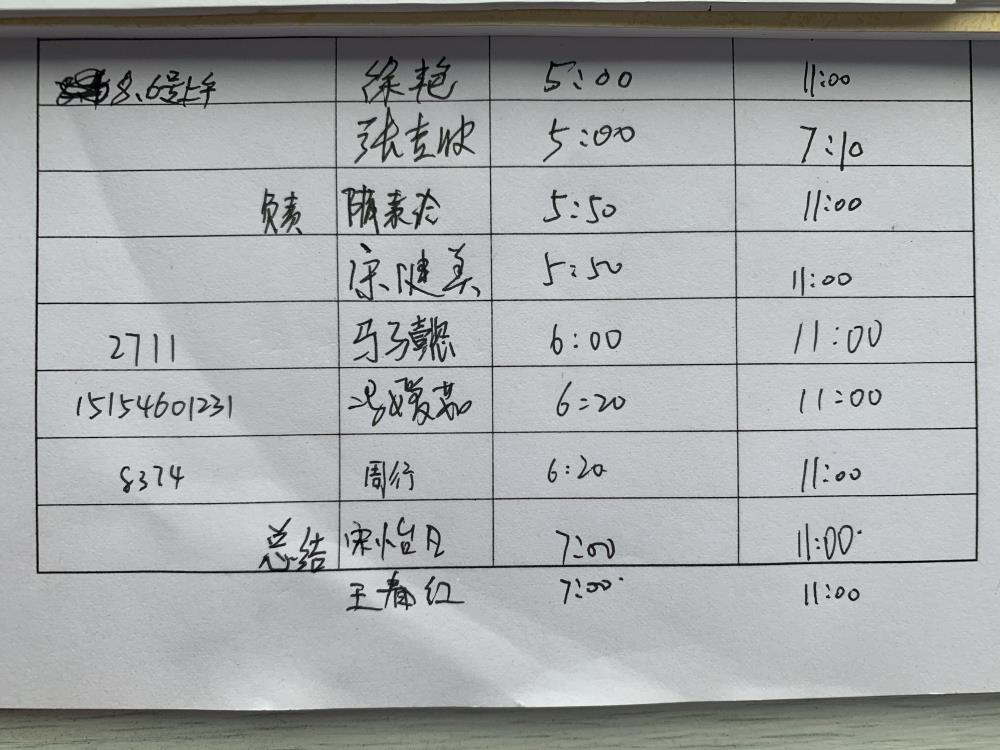 8.6号上午 徐艳 5:00 11:00
张吉波 5:00 7:10
负责 隋素玲 5:50 11:00
宋健美 5:50 11:00
2711 马 6:00 11:00
15154601231 冯媛茹 6:20 11:00
8374 周行 6:20 11:00
总结 宋怡凡 7:00 11:00
王春红 7:00 11:00